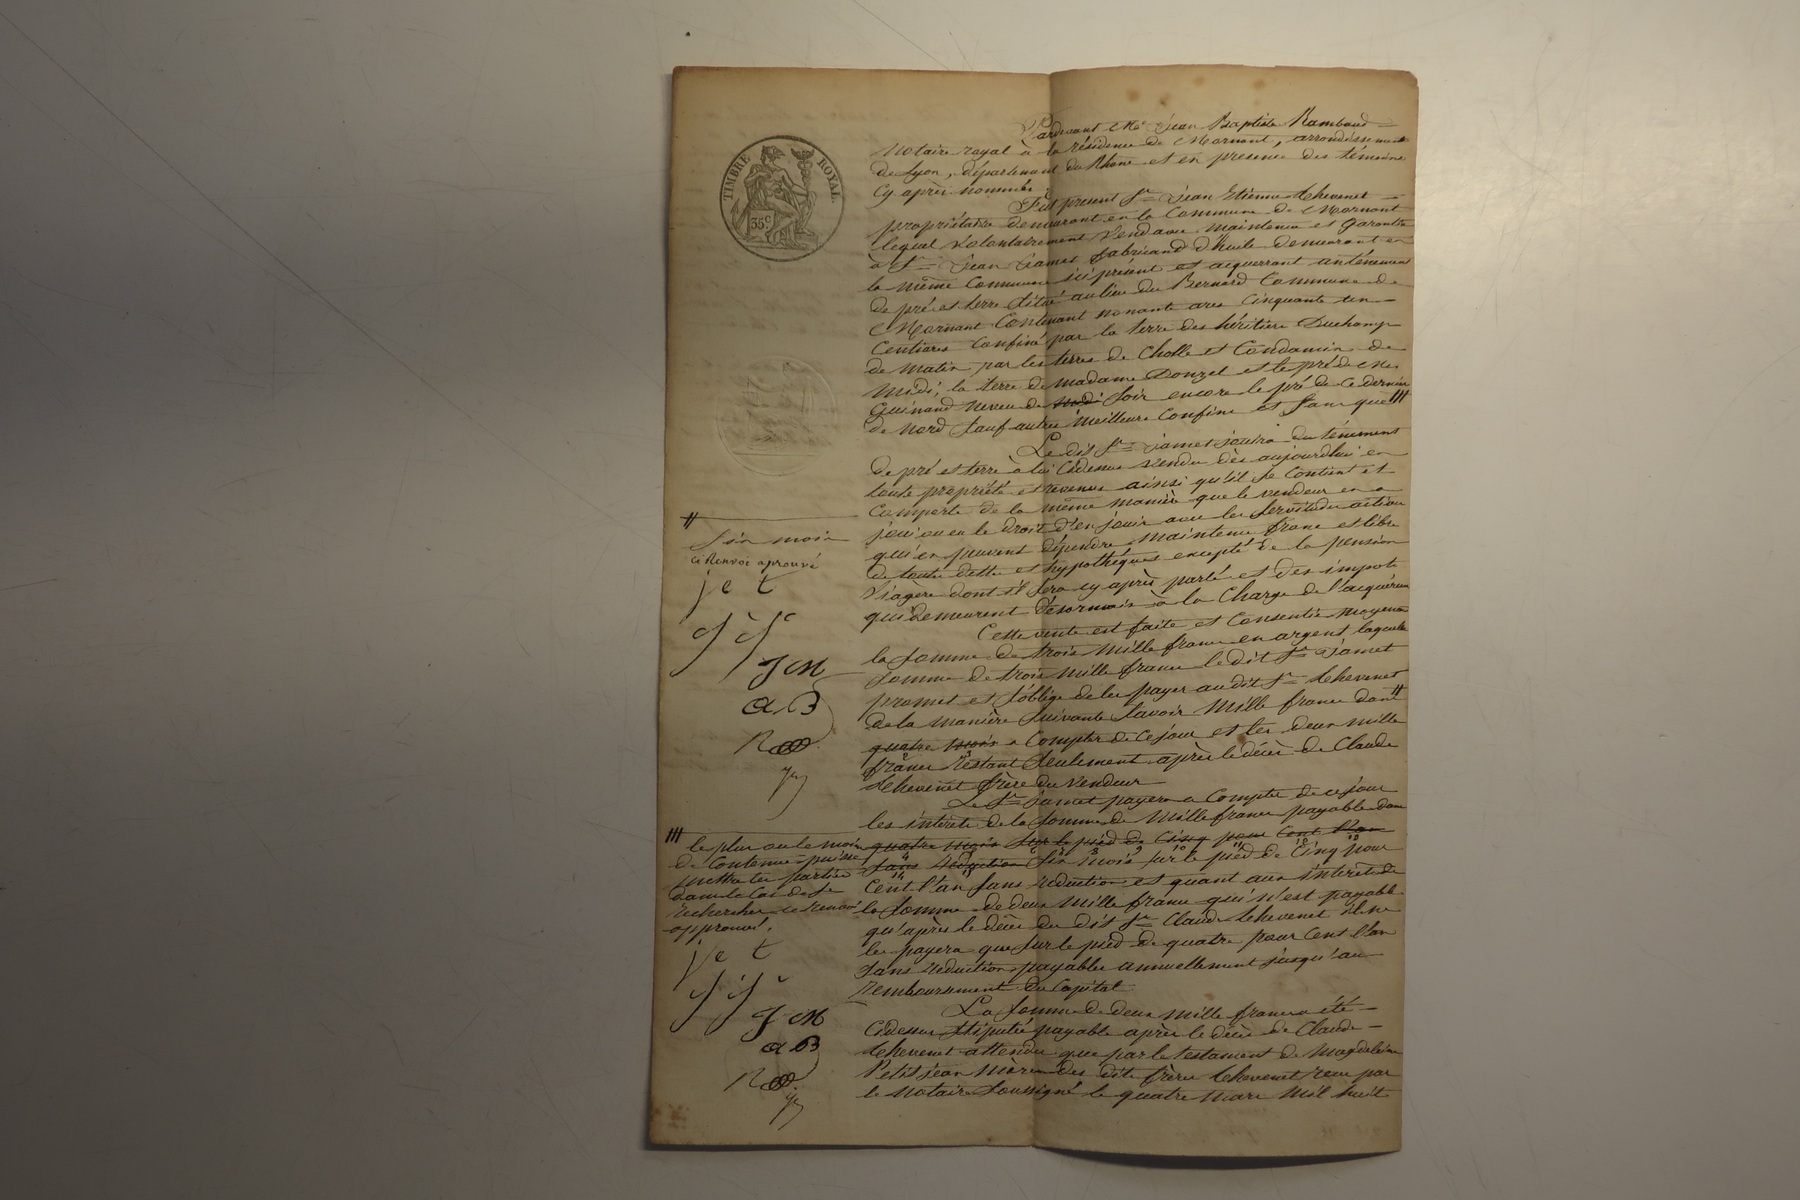 TIMBRE ROYAL
35c
Pardevant Me Jean Baptiste Rambaud
Notaire royal à la résidence de Mornant, arrondissement
de Lyon, département du Rhône et en présence des témoins
cy après nommés
Fut présent Sr Jean Etienne Thevenet
propriétaire demeurant en la Commune de Mornant
lequel volontairement vend avec maintenue et garantie
à Sr Jean Jamet fabricand d'huile demeurant en
la même Commune ici présent et acquerrant un ténement
de pré et terre situé au lieu du Bernard Commune de
Mornant Contenant nonante ares Cinquante un
Centiares Confiné par la terre des héritiers Duchamp
de matin, par les terres de Cholle et Condamin de
midi, la terre de madame Donzel et le pré de Me
Guinand neveu de midi soir encore le pré de ce dernier
de Nord sauf autres meilleurs Confins et sans que
Le dit Sr Jamet jouira du ténement
de pré et terre à lui Cidessus vendu dès aujourdhui en
toute propriété et revenus ainsi qu'il se Contient et
Comporte de la même manière que le vendeur en a
joui ou eu le droit d'en jouir avec les servitudes actives
qui en peuvent dépendre maintenu franc et libre
de toute dette et hypothéques excepté de la pension
Viagere dont il sera cy après parlé et des impots
qui demeurent désormais à la Charge de l'acquéreur
Cette vente est faite et Consentie moyenant
la somme de trois mille francs en argent, laquelle
somme de trois mille francs le dit Sr Jamet
promet et s'oblige de les payer au dit Sr Thevenet
de la manière suivante savoir Mille francs dans
quatre mois a Compter de ce jour et les deux mille
francs restant seulement après le décès de Claude
Thevenet frère du vendeur
Le Sr Jamet payera a Compter de ce jour
les intérets de la somme de Mille francs payable dans
quatre mois sur le pied de cinq pour cent l'an
sans réduction six mois sur le pied de Cinq pour
Cent l'an sans réduction et quant aux intérets de
la somme de deux mille francs qui n'est payable
qu'après le décès du dit Sr Claude Thevenet il ne
les payera que sur le pied de quatre pour Cent l'an
sans réduction payables annuellement jusqu'au
remboursement du Capital
La somme de deux mille francs a été
Cidessus stipulée payable après le décès de Claude
Thevenet attendu que par le testament de Magdeleine
Petitjean Mère des dits frères Thevenet reçu par
le Notaire soussigné le quatre mars mil huit
Six mois
ce Renvoi aprouvé
j e t
J M
a B
le plus ou le moins
de Contenue puisse
mettre les parties
dans le Cas de se
rechercher ce renvoi
approuvé.
j e t
J M
a B